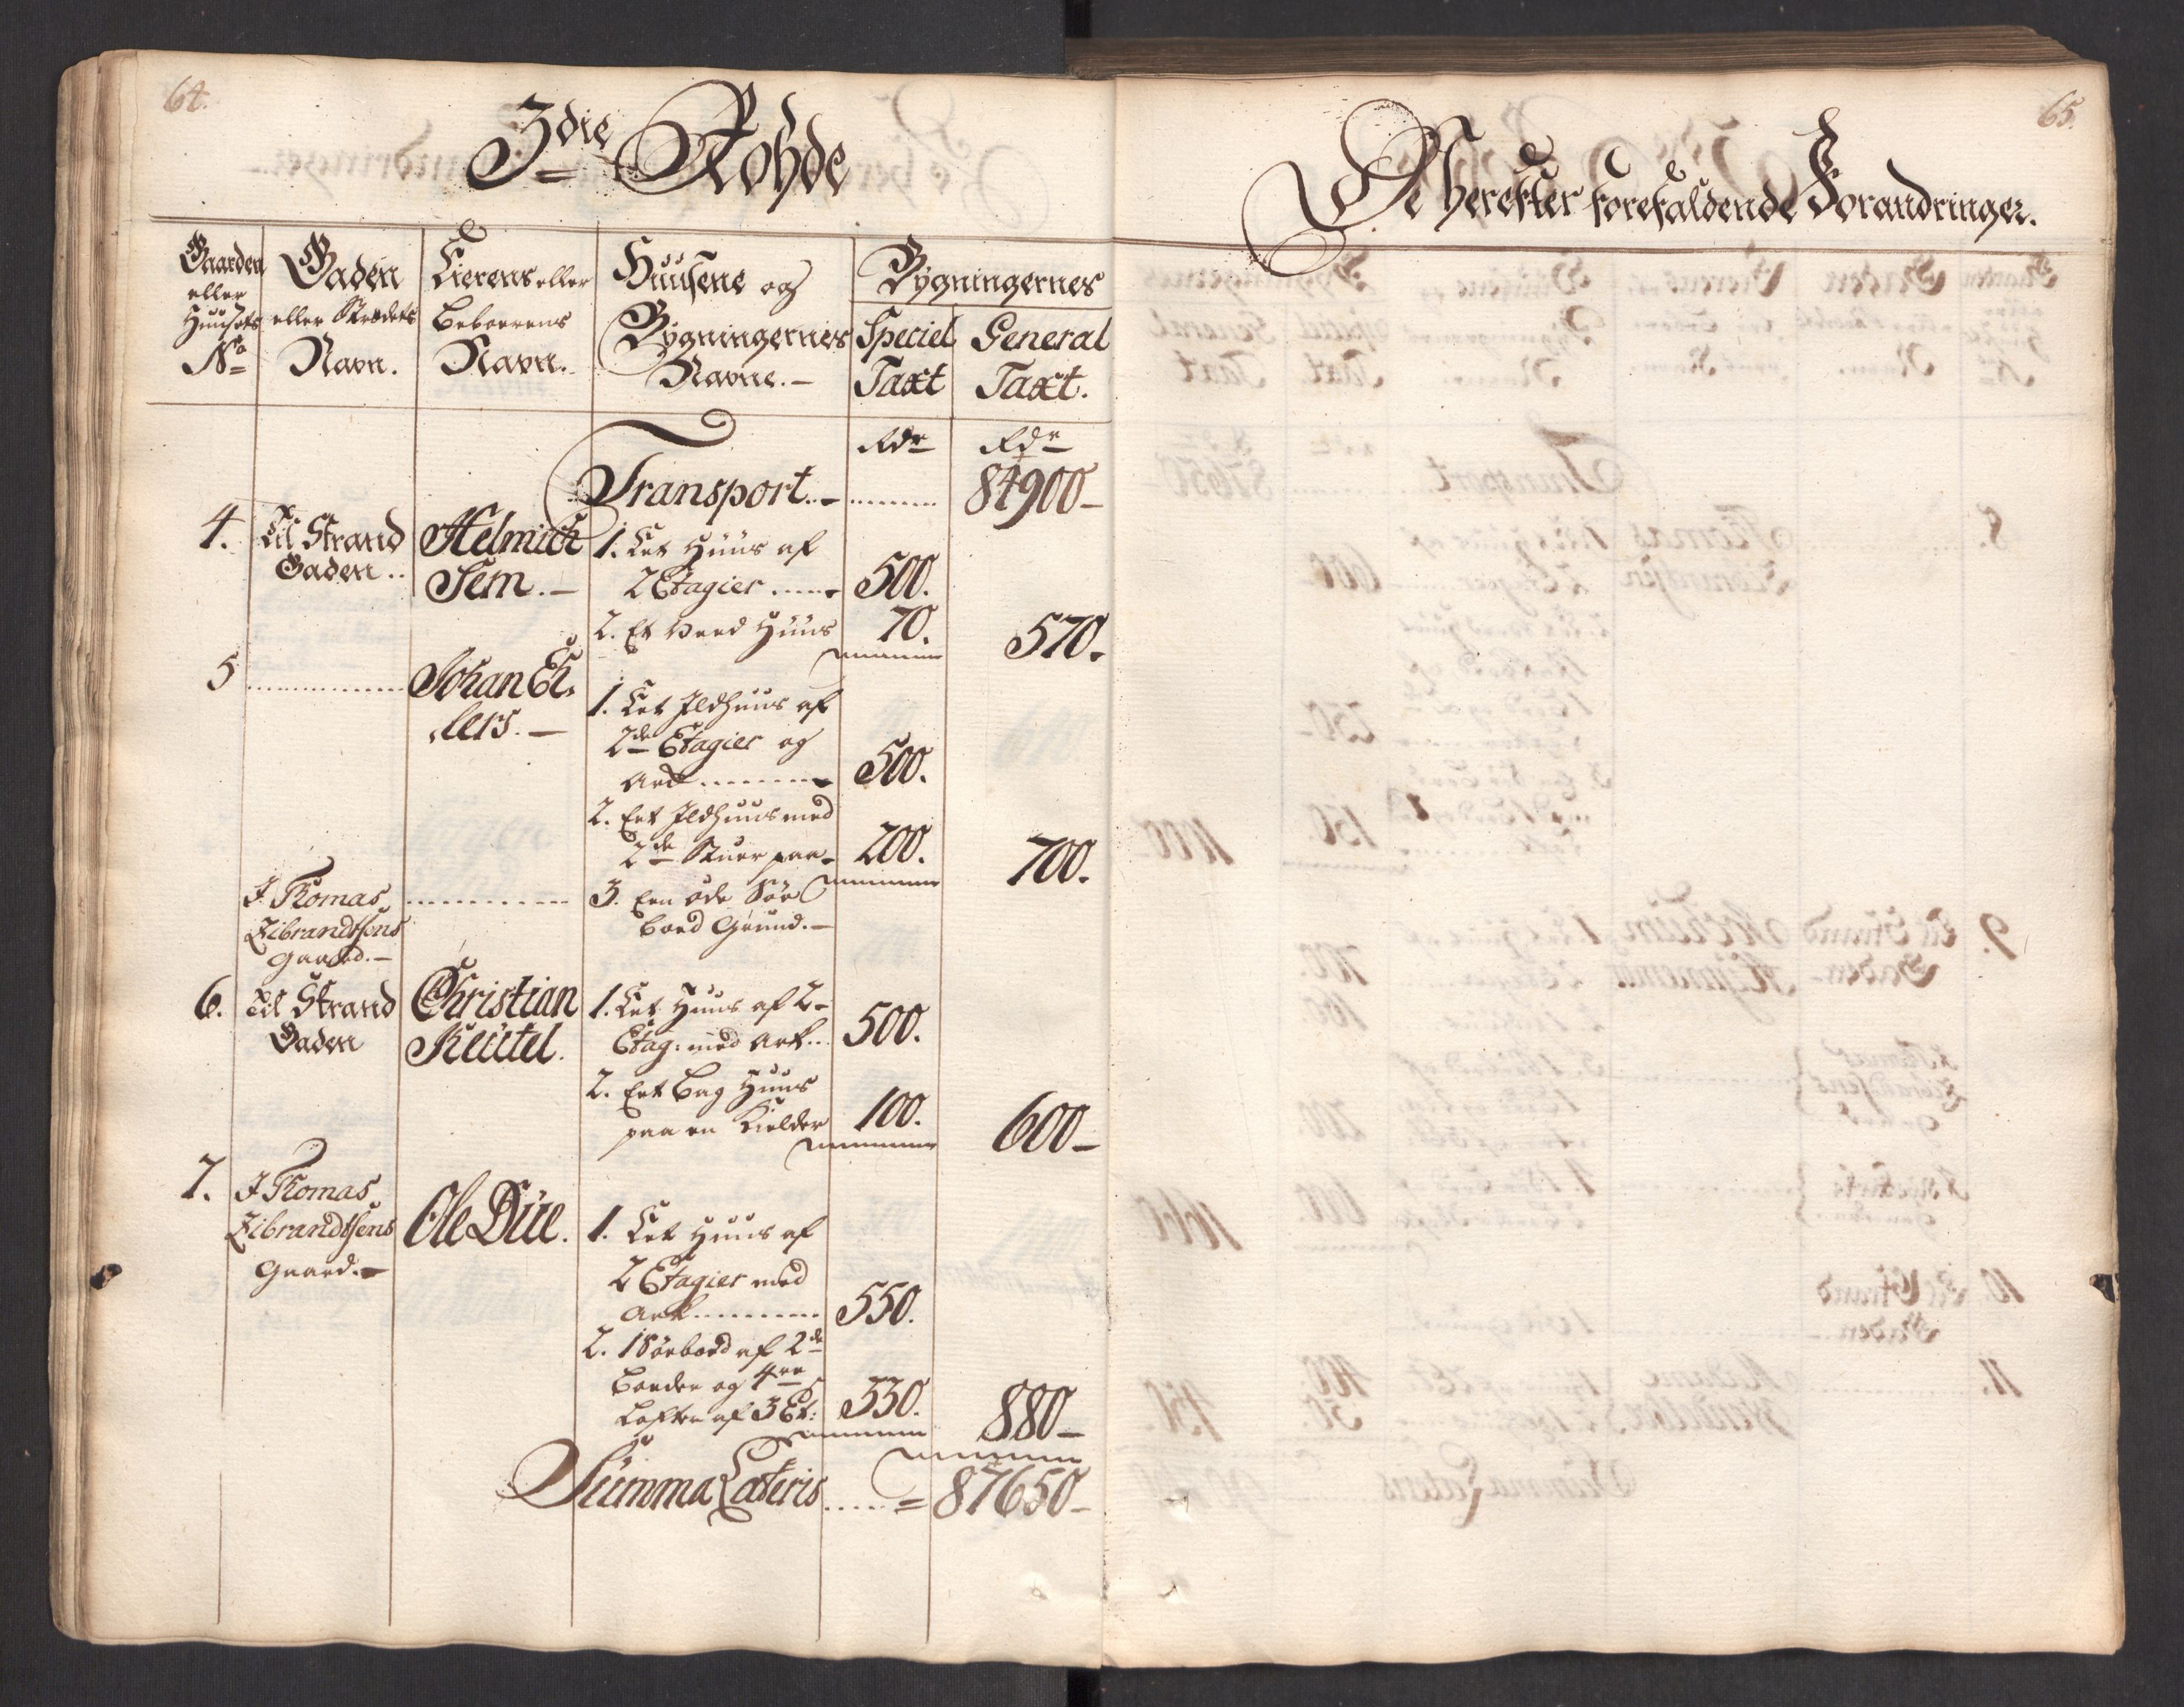 64.
3die Rohde
Gaarden eller Huusets No
Gaden eller Strædets Navn.
Eierens eller Beboerens Navn.
Huusene og Bygningernes Navne.
Bygningernes
Speciel Taxt
General Taxt.
Rdr Rdr
Transport.......... 84900
4. Til Strand Helmich 1. Eet Huus af
Gaden.. Sem. 2 Etagier ..... 500.
2. Et Vand Huus 70. 570.
5 ............... Johan Eh-
lers. 1. Eet Ildhuus af
2de Etagier og
Ark......... 500.
2. Eet Ildhuus med
2de Stuer paa 200. 700.
J. Thomas ............ 3. Een øde Søe
Zibrandtsens boed Grund.
Gaard.
6. Til Strand Christian 1. Eet Huus af 2
Gaden Keütel. Etag: med Ark.. 500.
2. Eet Bag Huus
paa en Kielder 100. 600
7. J Thomas
Zibrandtsens Ole Düe. 1. Eet Huus af
Gaard. 2 Etagier med
Ark......... 550.
2. 1 Søeboed af 2de
Boeder og 4re
Lofter af 3 Et: 330. 880
Summa Lateris..... = 87650
65.
De herefter forefaldende Forandringer.